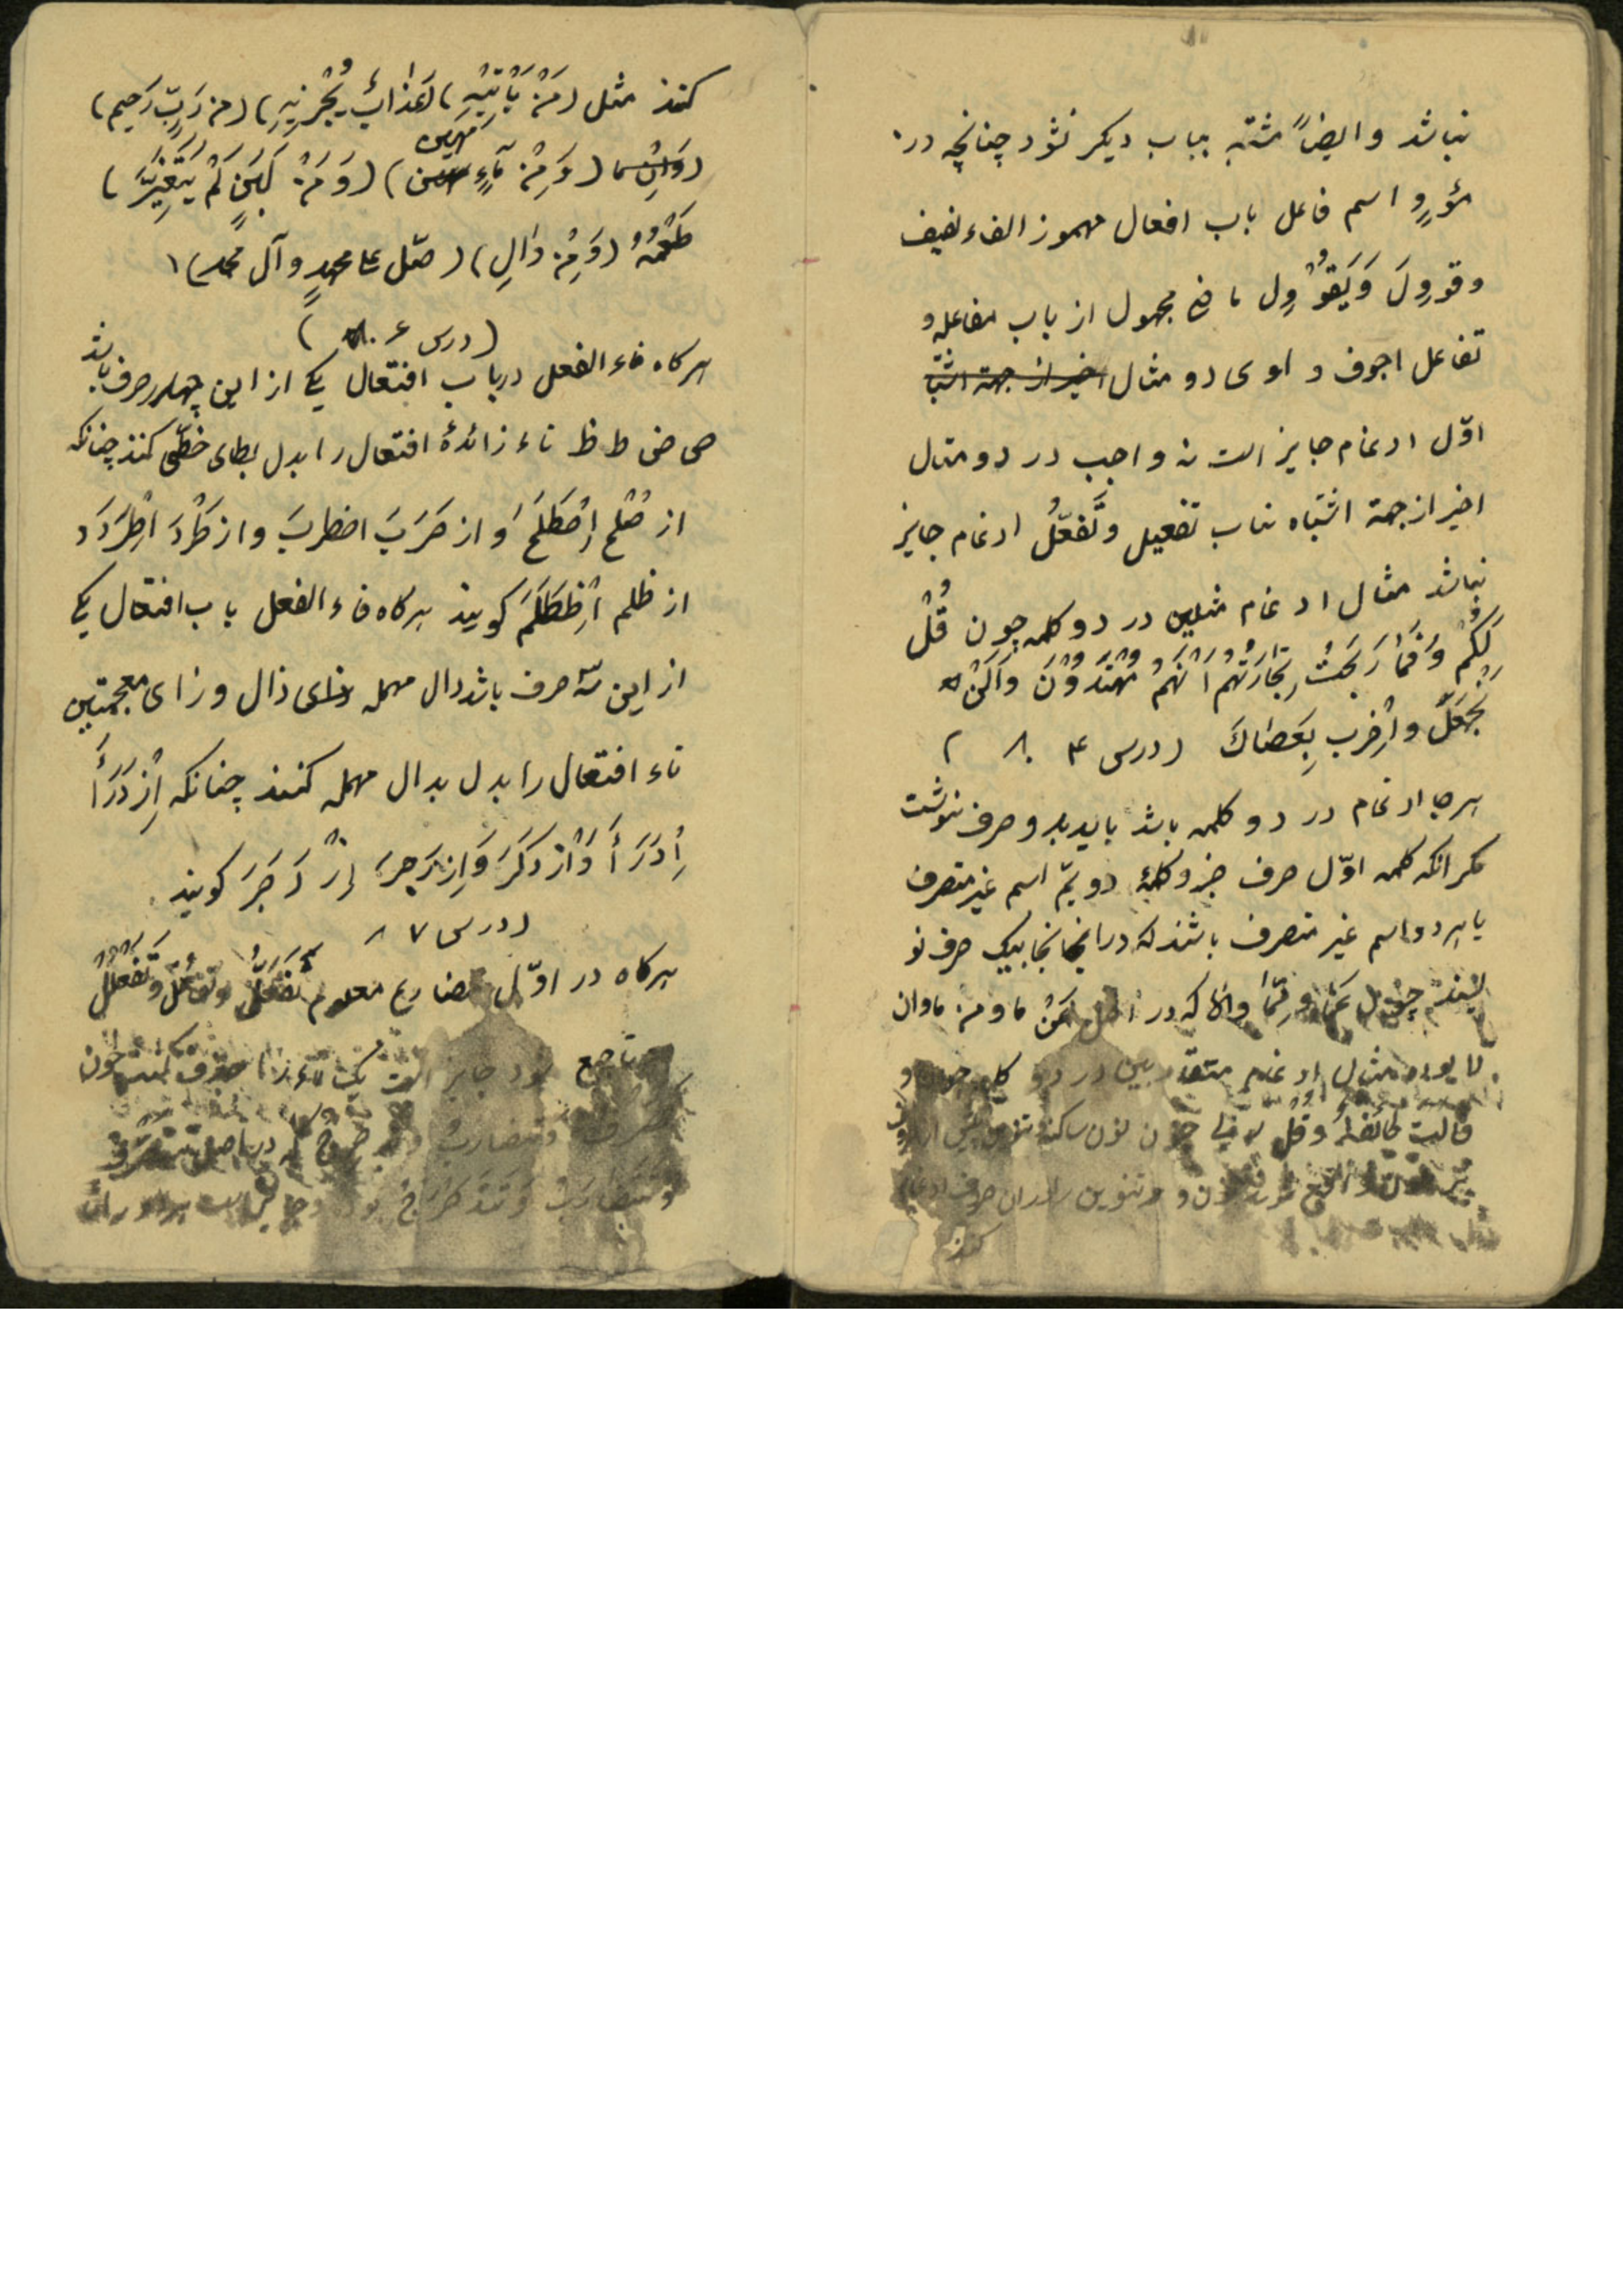 نباشد و ایضاً مشتبه بباب دیگر نشود چنانچه در
مؤرٍو اسم فاعل باب افعال مهموز الفاء لفیف
و قوول و یقوول ماضی مجهول از باب مفاعله و
تفاعل اجوف واوی دو مثال اخیر از جهة اشتبا
اوّل ادغام جایز است نه واجب در دو مثال
اخیر از جهة اشتباه بباب تفعیل و تَفَعّلُ ادغام جایز
نباشد مثال ادغام مثلین در دو کلمه چون قُلْ
لَکُم وَ فَمٰا رَبِحَتْ تِجٰارَتُهُم اَنَّهُمْ مُهْتَدُوْنَ وَ اَلَنْ
نَجْعَلَ و اِضْرِب بِعَصٰاکَ (درس ۴ ۸ )
هرجا ادغام در دو کلمه باشد باید بدو حرف نوشت
مگر انکه کلمه اوّل حرف جزو کلمهٔ دویّم اسم غیر متصرف
یا هر دو اسم غیر متصرف باشند که در انجا بیک حرف نو
یسند چون عَمّا و مِمّا و الّا که در اصل عَنْ ما و من ما و ان
لا بوده مثال ادغام متقاربین در دو کلمه چون و
قالت طائفة وَ قُل رب چون نون ساکنه تنوین
نون و تنوین را در ان حرف ادغام
کنند
کنند مثل (مَنْ یَأْتِیْهِ) (عَذٰابٌ یُخْزِیْهِ) (من رَبٍّ رَحیم)
(وَاِنْ ما) (وَ مِنْ مٰاءٍ مَهین) (وَ مَنْ لَبَنٍ لَمْ یَتَغَیَّرَ)
طَعْمُهُ (وَ مِنْ وٰالٍ) (صَلّ علی محمدٍ و آل محمد)
(درس ۶ ۸۰ )
هرگاه فاء الفعل در باب افتعال یکی از این چهار حرف باشد
ص ض ط ظ تاء زائدهٔ افتعال را بدل بطای خطّی کنند چنانکه
از صُلْح اِصْطَلَحَ وَ از ضَرَبَ اضطربَ و از طَرْدَ اِطْرَدَ و
از ظلم اِظْطَلَمَ گویند هرگاه فاء الفعل باب افتعال یکی
از این سّه حرف باشد دال مهمله ذال و زای معجمتین
تاء افتعال را بدل بدال مهمله کنند چنانکه اِزْدَرَأَ
اِدَرَأَ وَ اْذ دَکَرَ وَ اِزدَجَرَ اِزْدَجَرَ گویند
(درس ۷ ۸
هرگاه در اوّل مضارع معلوم تَفَعّل و تفاعُل و تَفَعْلُلْ
دو تا جمع شود جایز است یک تاء را حذف کنند چون
تَصَرّف و تضارب که در اصل تتصرّف
و تَتَضٰارَبُ وَ تَتَدَحْرَجُ بوده و جایز است